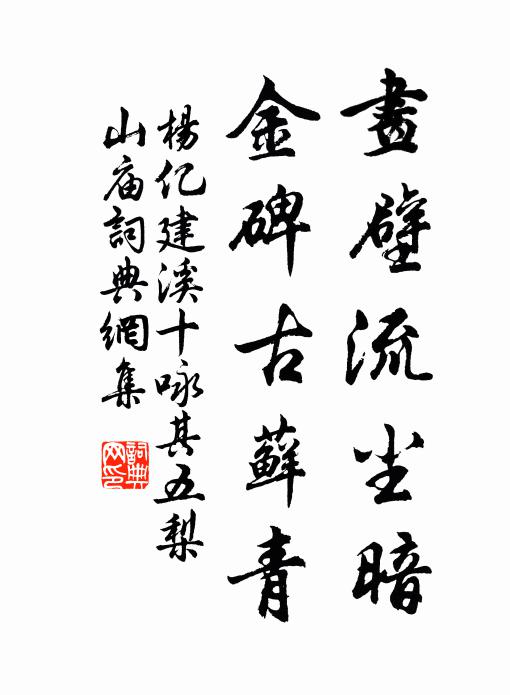 畫壁流尘暗
金碑古蘚青
楊亿建溪十咏其五梨
山庙詞典網集
詞典网印